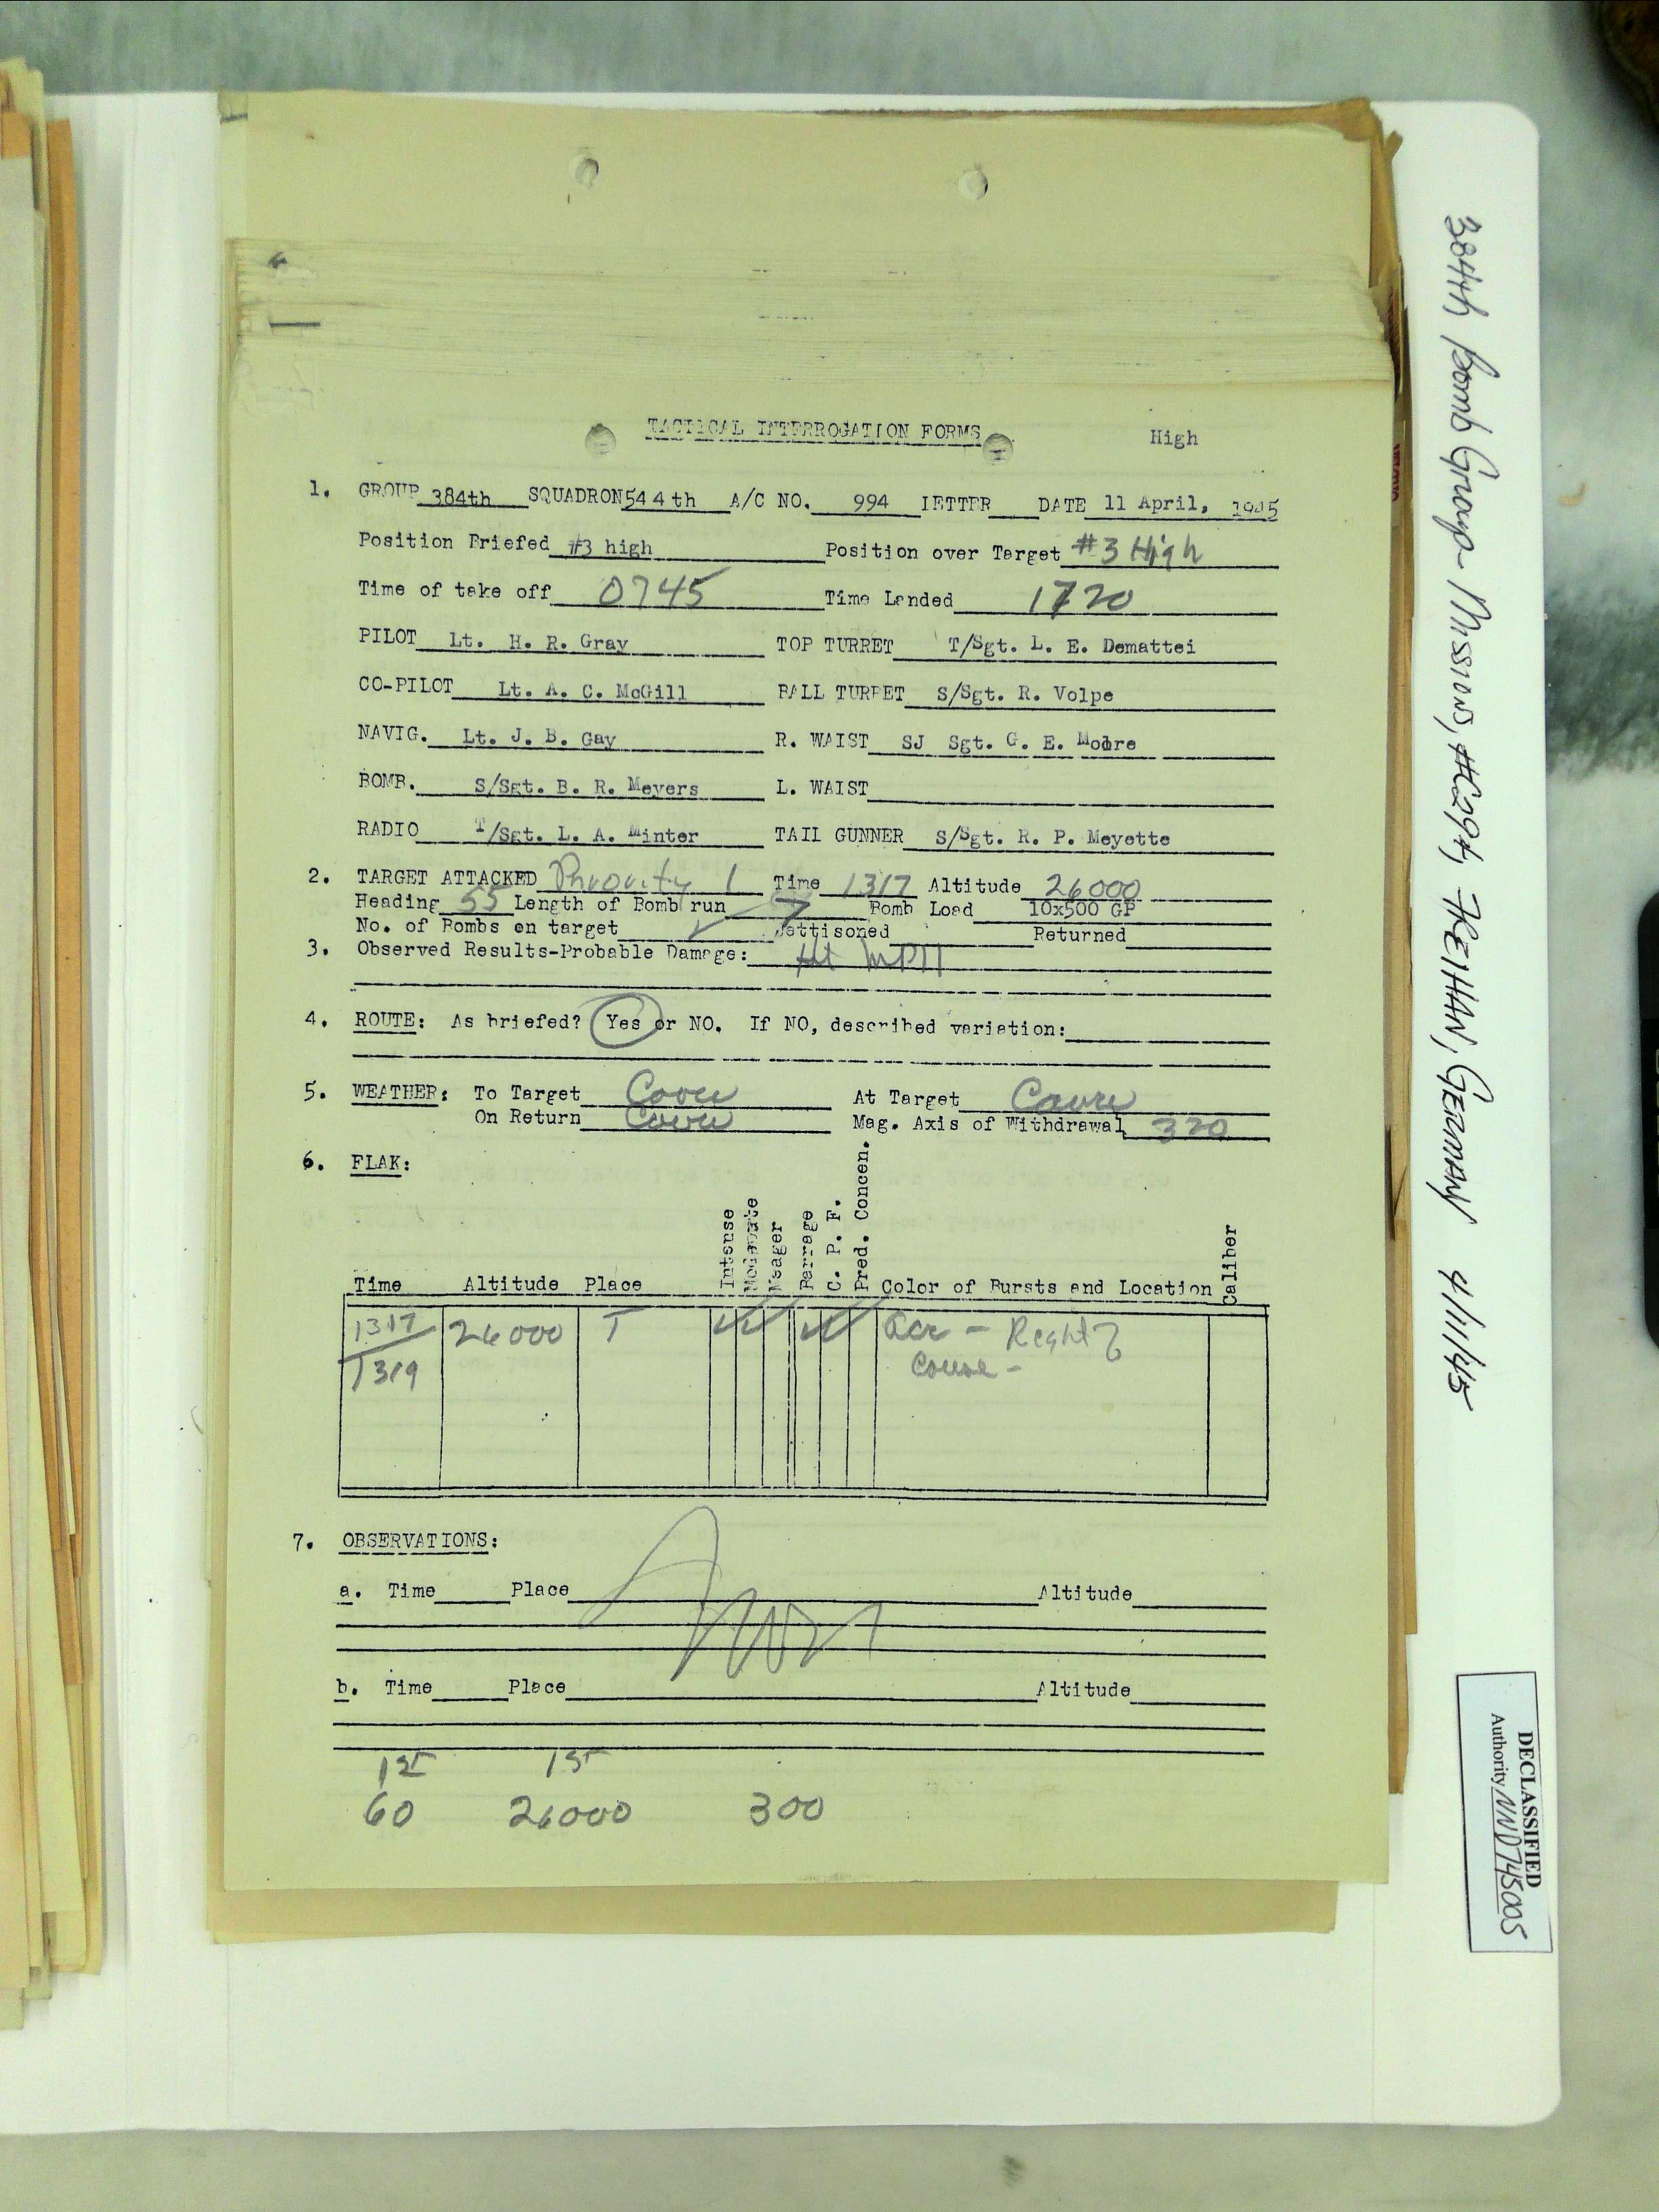 TACTICAL INTERROGATION FORMS High
1. GROUP 384th SQUADRON 544th A/C NO. 994 LETTER DATE 11 April, 1945
Position Briefed #3 high Position over Target #3 High
Time of take off 0745 Time Landed 1720
PILOT Lt. H. R. Gray TOP TURRET T/Sgt. L. E. Demattei
CO-PILOT Lt. A. C. McGill BALL TURRET S/Sgt. R. Volpe
NAVIG. Lt. J. B. Gay R. WAIST SJ Sgt. G. E. Moore
BOMB. S/Sgt. B. R. Meyers L. WAIST
RADIO T/Sgt. L. A. Minter TAIL GUNNER S/Sgt. R. P. Meyette
2. TARGET ATTACKED Priority 1 Time 1317 Altitude 26000
Heading 55 Length of Bomb run Bomb Load 10x500 GP
No. of Bombs on target Jettisoned Returned
3. Observed Results-Probable Damage: Hit MPI
4. ROUTE: As briefed? Yes or NO. If NO, described variation:
5. WEATHER: To Target Cavu At Target Cavu
On Return Cavu Mag. Axis of Withdrawal 320
6. FLAK:
Time Altitude Place Intense Moderate Meager Barrage C. P. F. Pred. Concen. Color of Bursts and Location Caliber
1317 26000 T Right of
1319 Course -
7. OBSERVATIONS:
a. Time Place Altitude
b. Time Place Altitude
1st 1st
60 26000 300
384th Bomb Group - Mission #294, FREIHAN, GERMANY 4/11/45
DECLASSIFIED
Authority NND745005